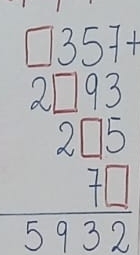 □357+
2□93
2□5
7□
5932